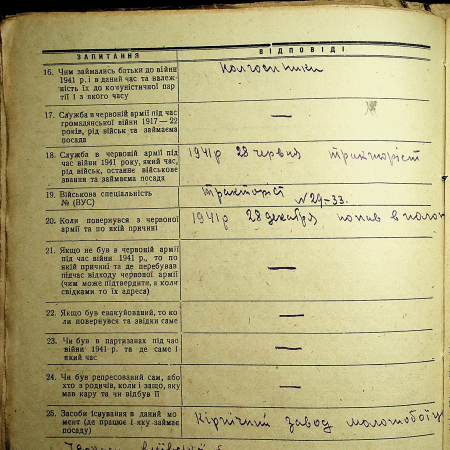 ЗАПИТАННЯ ВІДПОВІДІ
16. Чим займались батьки до війни
1941 р. і в даний час та належ-
ність їх до комуністичної пар-
тії і з якого часу
Колгоспники
17. Служба в червоній армії під час
громадянської війни 1917—22
років, рід військ та займаема
посада
—
18. Служба в червоній армії під
час війни 1941 року, який час,
рід військ, останнє військове
звання та займаема посада
1941р 28 червня тракторіст
19. Військова спеціальність
№ (ВУС)
тракторіст
№ 29-33.
20. Коли повернувся з червоної
армії та по якій причині
1941р 28 декабря попав в полон
21. Якщо не був в червоній армії
під час війни 1941 р., то по
якій причині та де перебував
під час відходу червоної армії
(чим може підтвердити, а коли
свідками то їх адреса)
—
22. Якщо був евакуйований, то ко-
ли повернувся та звідки саме
—
23. Чи був в партизанах під час
війни 1941 р. та де саме і
який час
—
24. Чи був репресований сам, або
хто з родичів, коли і защо, яку
мав кару та чи відбув її
—
25. Засоби існування в даний мо-
мент (де працює і яку займає
посаду)
Кірпічний завод молотобоїц